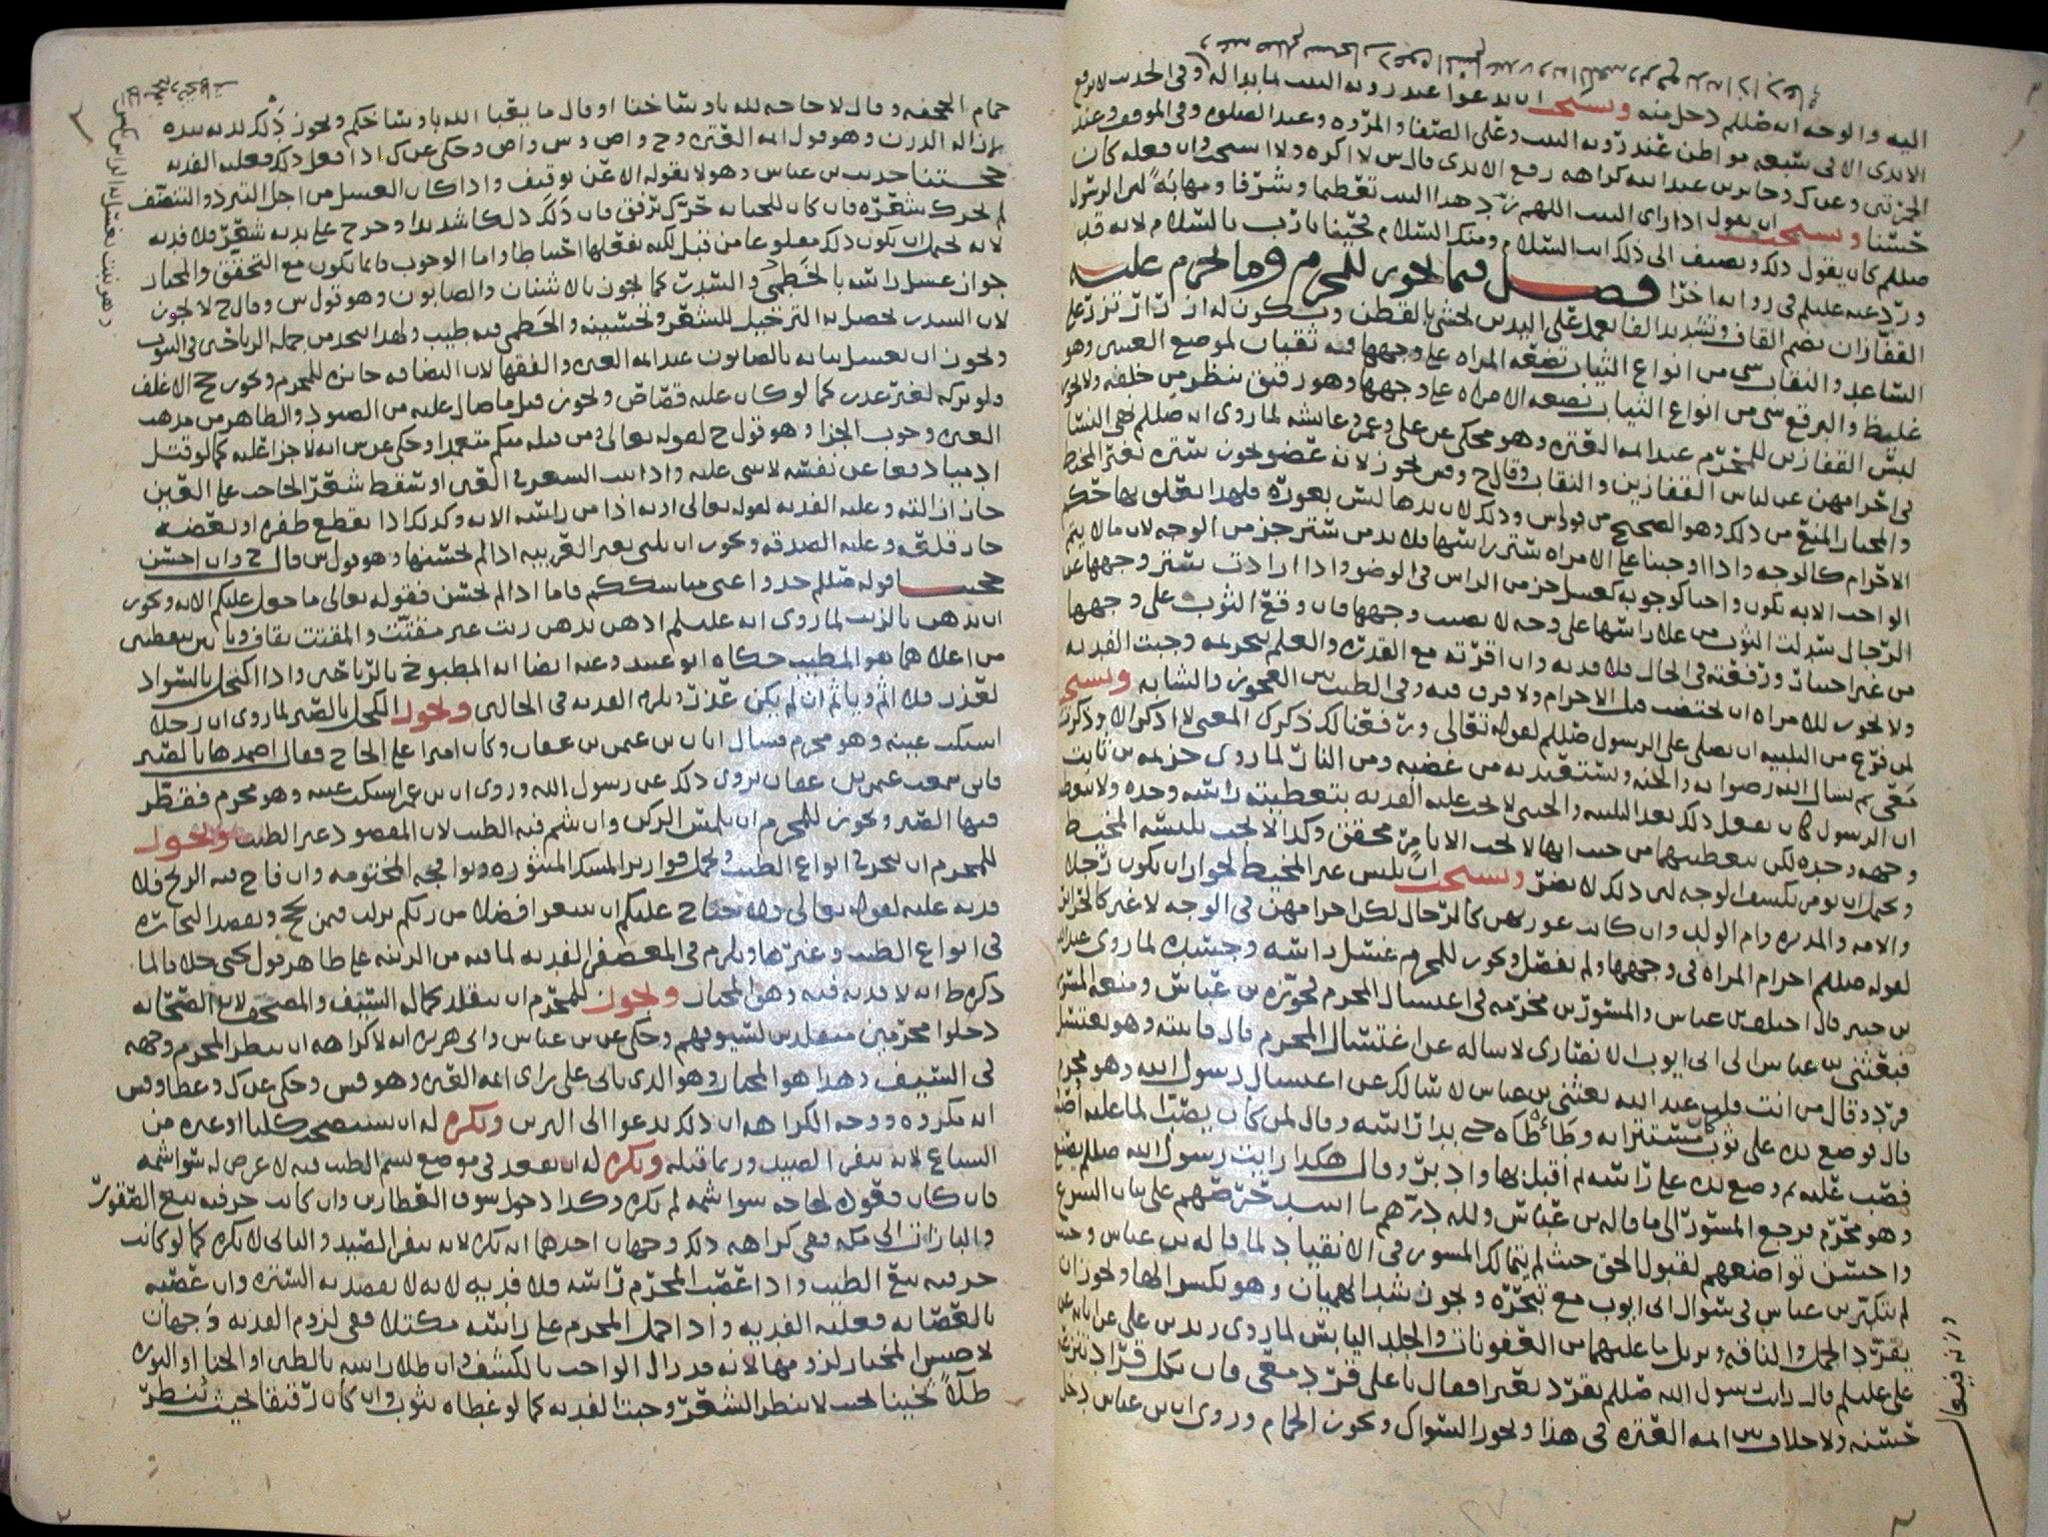 اليه والوجه انه صللم دخل منه ويستحب ان يدعوا عند رويه البيت لما بدا له وفى الحديث لا ترفع
الايدى الا فى سبعه مواطن عند رويه البيت وعلى الصفا والمروه وعند الصلوه وفى الموقف وعند
الجمرتين وعن ك وجابر بن عبد الله كراهه رفع الايدى قال س لا اكره ولا استحب وان فعله كان
حسنا ويستحب ان يقول اذا راى البيت اللهم زد هذا البيت تعظيما وشرفا ومهابة لان الرسول
صللم كان يقول ذلك ويضيف الى ذلك انت السلام ومنك السلام فحينا ربنا بالسلام لانه قد
ورد عنه عليلم فى روايه اخرا فصل فيما يجوز للمحرم وما يحرم عليه
القفازان بضم القاف وتشديد الفا يعمل على اليدين يحشى بالقطن ويكون له ازرار تزر على
الساعد والنقاب شى من انواع الثياب تضعه المراه على وجهها فيه ثقبان لموضع العينين وهو
غليظ والبرقع شى من انواع الثياب تضعه الامراه على وجهها وهو رقيق ينظر من خلفه ولا يجوز
لبس القفازين للمحرم عند ايمه العتره وهو محكى عن على وعمر وعايشه لما روى انه صللم نهى النسا
فى احرامهن عن لباس القفازين والنقاب وقال ح وص يجوز لانه عضو يجوز ستره بغير المخيط
والمختار المنع من ذلك وهو الصحيح من قولى س وذلك لان يدها ليس بعوره فلهذا تعلق بها حكم
الاحرام كالوجه واذا اوجبنا على الامراه ستر راسها فلا بد من ستر جز من الوجه لان ما لا يتم
الواجب الا به يكون واجبا كوجوبه كغسل جز من الراس فى الوضو واذا ارادت ستر وجهها عن
الرجال سدلت الثوب من على راسها على وجه لا يصيب وجهها فان وقع الثوب على وجهها
من غير اختيار ورفعته فى الحال فلا فديه وان اقرته مع القدره والعلم بتحريمه وجبت الفديه
ولا يجوز للامراه ان تختضب قبل الاحرام ولا فرق فيه وفى الطيب بين العجوز والشابه ويستحب
لمن فرغ من التلبيه ان يصلى على الرسول صللم لقوله تعالى ورفعنا لك ذكرك المعنى لا اذكر الا وذكرت
معى ثم يسال الله رضوانه والجنه ويستعيذ به من غضبه ومن النار لما روى خزيمه بن ثابت
ان الرسول كان يفعل ذلك بعد التلبيه والخنثى لا تجب عليه الفديه بتغطيته راسه وحده ولا بتغطيه
وجهه وحده لكن بتغطيتهما من حيث انها لا تجب الا بامر محقق وكذا لا تجب بلبسه المخيط
ويحتمل ان يومر بكشف الوجه لان ذلك لا يضر ويستحب ان يلبس غير المخيط لجواز ان يكون رجلا
والامه والمدبره وام الولد وان كانت عورتهن كالرجال لكن احرامهن فى الوجه لا غير كالحراير
لقوله صللم احرام المراه فى وجهها ولم يفصل ويجوز للمحرم غسل راسه وجسده لما روى عبد الله
بن جبير قال اختلف بن عباس والمسور بن مخرمه فى اغتسال المحرم فجوزه بن عباس ومنعه المسور
فبعثنى بن عباس الى ابى ايوب الانصارى لاساله عن اغتسال المحرم قال فاتيته وهو يغتسل
فرد وقال من انت قلت عبد الله بعثنى بن عباس لاسالك عن اغتسال رسول الله وهو محرم
قال فوضع يده على ثوب كان مستترا به وطاطاه حتى بدا راسه وقال لمن كان يصب الما عليه اصبب
فصب عليه ثم وضع يده على راسه ثم اقبل بها وادبر وقال هكذا رايت رسول الله صللم يصنع
وهو محرم فرجع المسور الى ما قاله بن عباس ولله درهم ما اشد حرصهم على بيان الشرع
واحسن تواضعهم لقبول الحق حيث لم يتمالك المسور فى الانقياد لما قاله بن عباس وحيث
لم يتكبر بن عباس فى سوال ابى ايوب مع تبحره ويجوز شد الهميان وهو بكسر الها ويجوز ان
يقرد الجمل والناقه ويزيل ما عليهما من العفونات والجلد اليابس لما روى زيد بن على عن ابايه عن
على عليلم قال رايت رسول الله صللم يقرد بعيرا فقال يا على قرد معى فان بكل قراد تنزعه
حسنه ولا خلاف بين ايمه العتره فى هذا ويجوز السواك ويجوز الحمام وروى ان بن عباس دخل
حمام الجحفه وقال لا حاجه لله باوساخنا او قال ما يعبا الله باوساخكم ويجوز دلك بدنه بيده
بازاله الدرن وهو قول ايمه العتره وح واص وس واص وحكى عن ك اذا فعل ذلك فعليه الفديه
حجتنا حديث بن عباس وهو لا يقوله الا عن توقيف واذا كان الغسل من اجل التبرد والتنظف
لم يحرك شعره فان كان للجنابه حرك برفق فان دلك دلكا شديدا وخرج على يديه شعر فلا فديه
لانه يحتمل ان يكون ذلك مقلوعا من قبل لكنه يفعلها احتياطا واما الوجوب فانما يكون مع التحقق والمختار
جواز غسل راسه بالخطمى والسدر كما يجوز بالاشنان والصابون وهو قول س وقال ح لا يجوز
لان السدر يحصل به الترجيل للشعر وتحسينه والخطمى فيه طيب ولهذا يتخذ من جمله الرياحين فى البيوت
ويجوز ان يغسل ثيابه بالصابون عند ايمه العتره والفقها لان النظافه جايزه للمحرم ويجوز حج الاغلف
ولو تركه لغير عذر كما لو كان عليه قصاص ويجوز قتل ما صال عليه من الصيود والظاهر من مذهب
العتره وجوب الجزا وهو قول ح لقوله تعالى ومن قتله منكم متعمدا وحكى عن س انه لا جزا عليه كما لو قتل
ادميا دفعا عن نفسه لا شى عليه واذا نبت الشعر فى العين او سقط شعر الحاجب على العين
جاز ازالته وعليه الفديه لقوله تعالى او به اذا من راسه الايه وكذلك اذا انقطع ظفره او بعضه
جاز قلعه وعليه الصدقه ويجوز ان يلبى بغير العربيه اذا لم يحسنها وهو قول س قال ح وان احسن
حجتنا قوله صللم خذوا عنى مناسككم فاما اذا لم يحسن فقوله تعالى ما جعل عليكم الايه ويجوز
ان يدهن بالزيت لما روى انه عليلم ادهن بدهن زيت غير مقتت والمقتت بقاف وتاين بنقطتين
من اعلاهما هو المطيب حكاه ابو عبيد وعنه ايضا انه المطبوخ بالرياحين واذا اكتحل بالسواد
لعذر فلا اثم وياثم ان لم يكن عذر ويلزم الفديه فى الحالين ويجوز الكحل بالصبر لما روى ان رجلا
اشتكت عينه وهو محرم فسال ابان بن عثمن بن عفان وكان اميرا على الحاج فقال اضمدها بالصبر
فانى سمعت عثمن بن عفان يروى ذلك عن رسول الله وروى ان بن عمر اشتكت عينه وهو محرم فقطر
فيها الصبر ويجوز للمحرم ان يلمس الركن وان شم فيه الطيب لان المقصود غير الطيب ويجوز
للمحرم ان يتجر فى انواع الطيب ويحمل قوارير المسك المنثوره ونوافجه المختومه وان فاح فيه الريح فلا
فديه عليه لقوله تعالى ولا جناح عليكم ان تبتغوا فضلا من ربكم نزلت فيمن يحج ويقصد التجاره
فى انواع الطيب وغيرها ويلزم فى المعصفر الفديه لما فيه من الزينه على ظاهر قول يحيى خلافا لما
ذكره ط انه لا فديه فيه وهو المختار ويجوز للمحرم ان يتقلد حماله السيف والمصحف لان الصحابه
دخلوا محرمين متقلدين لسيوفهم وحكى عن بن عباس وابى هريره انه لا كراهه ان ينظر المحرم وجهه
فى السيف وهذا هو المختار وهو الذى ياتى على راى ايمه العتره وهو قس وحكى عن ك وعطا وقس
انه مكروه ووجه الكراهه ان ذلك يدعوا الى التزين ويكره له ان يستصحب كلبا او غيره من
السباع لانه ينفر الصيد وربما قتله ويكره له ان يقعد فى موضع يشم الطيب فيه لا غرض له سوا شمه
فان كان قعوده لحاجه سوا شمه لم يكره وكذا دخول سوق العطارين وان كانت حرفته بيع الصقور
والبازات الى مكه ففى كراهه ذلك وجهان احدهما انه يكره لانه ينفر الصيد والثانى لا يكره كما لو كانت
حرفته بيع الطيب واذا عصب المحرم راسه فلا فديه لانه لا يقصد به الستره وان غطته
بالعصابه فعليه الفديه واذا حمل المحرم على راسه مكتلا ففى لزوم الفديه وجهان
لاصحابنا المختار لزومها لانه قد زال الواجب بالكشف وان طلا راسه بالطين او الحنا او النوره
طلاً ثخينا بحيث لا ينظر الشعر وجبت الفديه كما لو غطاه بثوب وان كان رقيقا بحيث ينظر